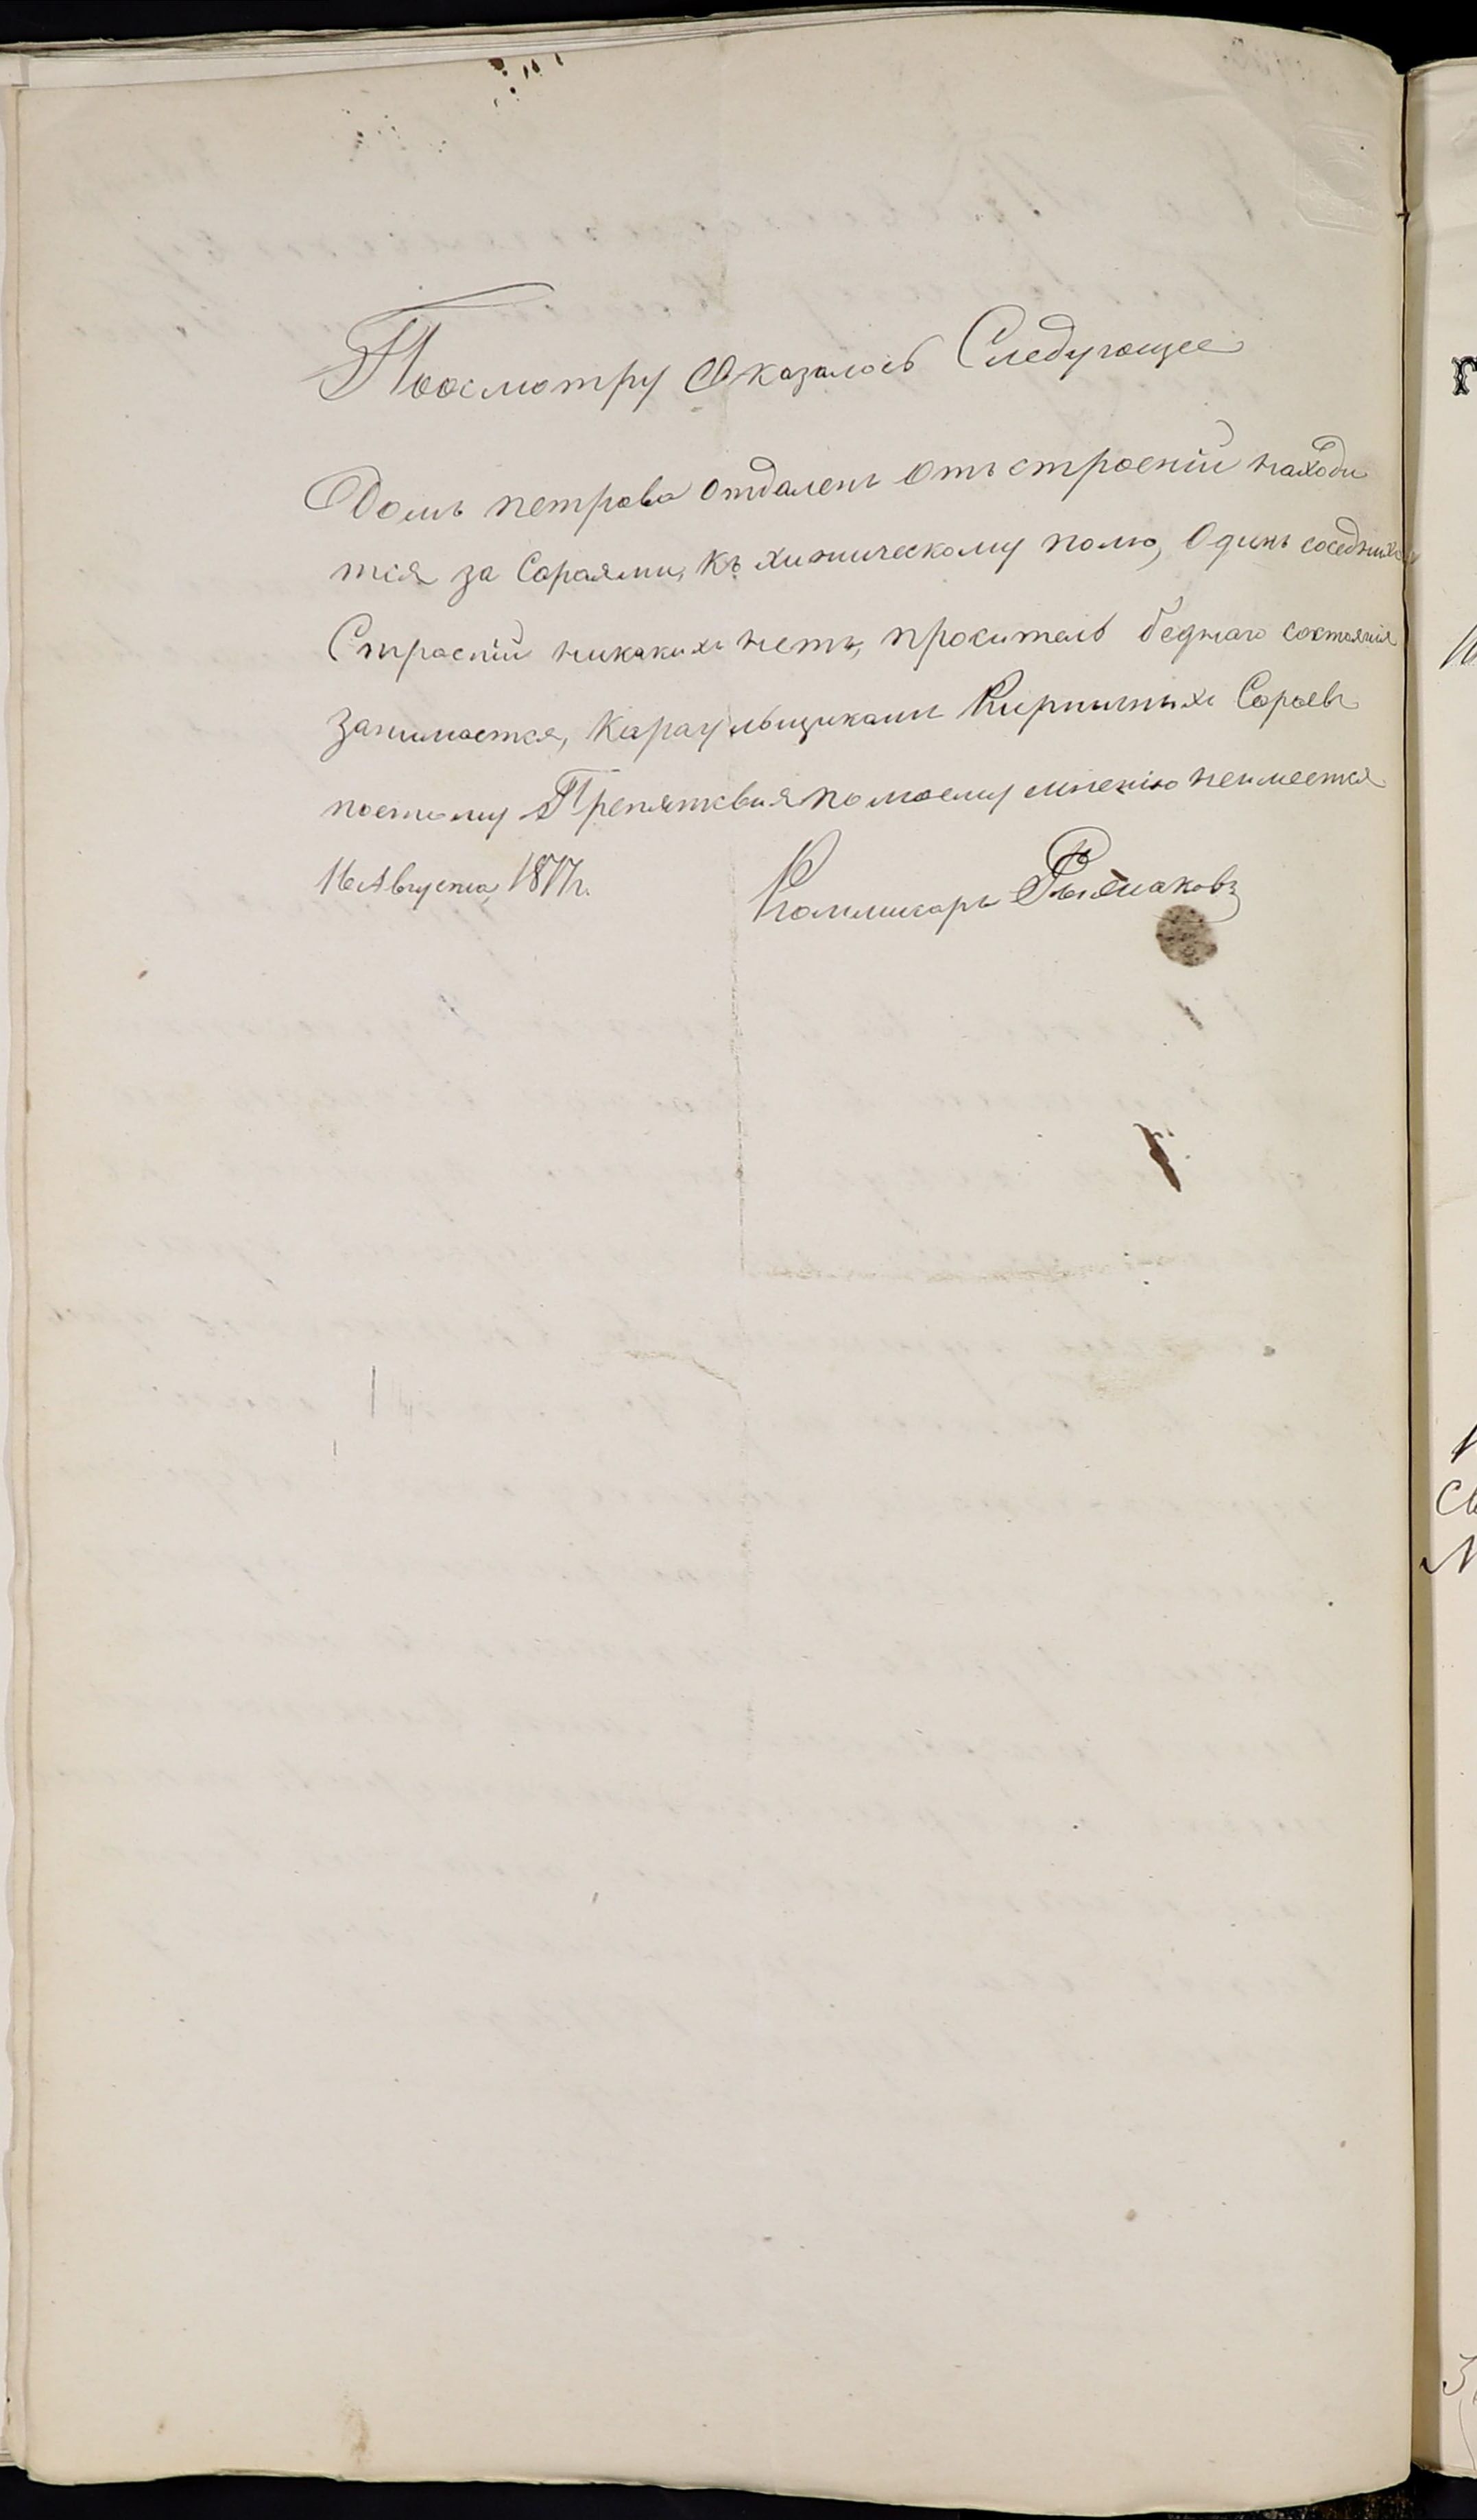 Поосмотру Оказалось Следующее
Домъ петрова отдаленъ Отъ строеніи находи
тся за Сараями, къ хитическому полю, Одинъ соседних
Строеніи никакихъ нетъ, проситель беднаго состояния
занимается, Караульщиками Кирпичныхъ Сараевъ
поетому Препятквия помоему мнению неимеется
16 Августа, 1877 г.
Коммисаръ